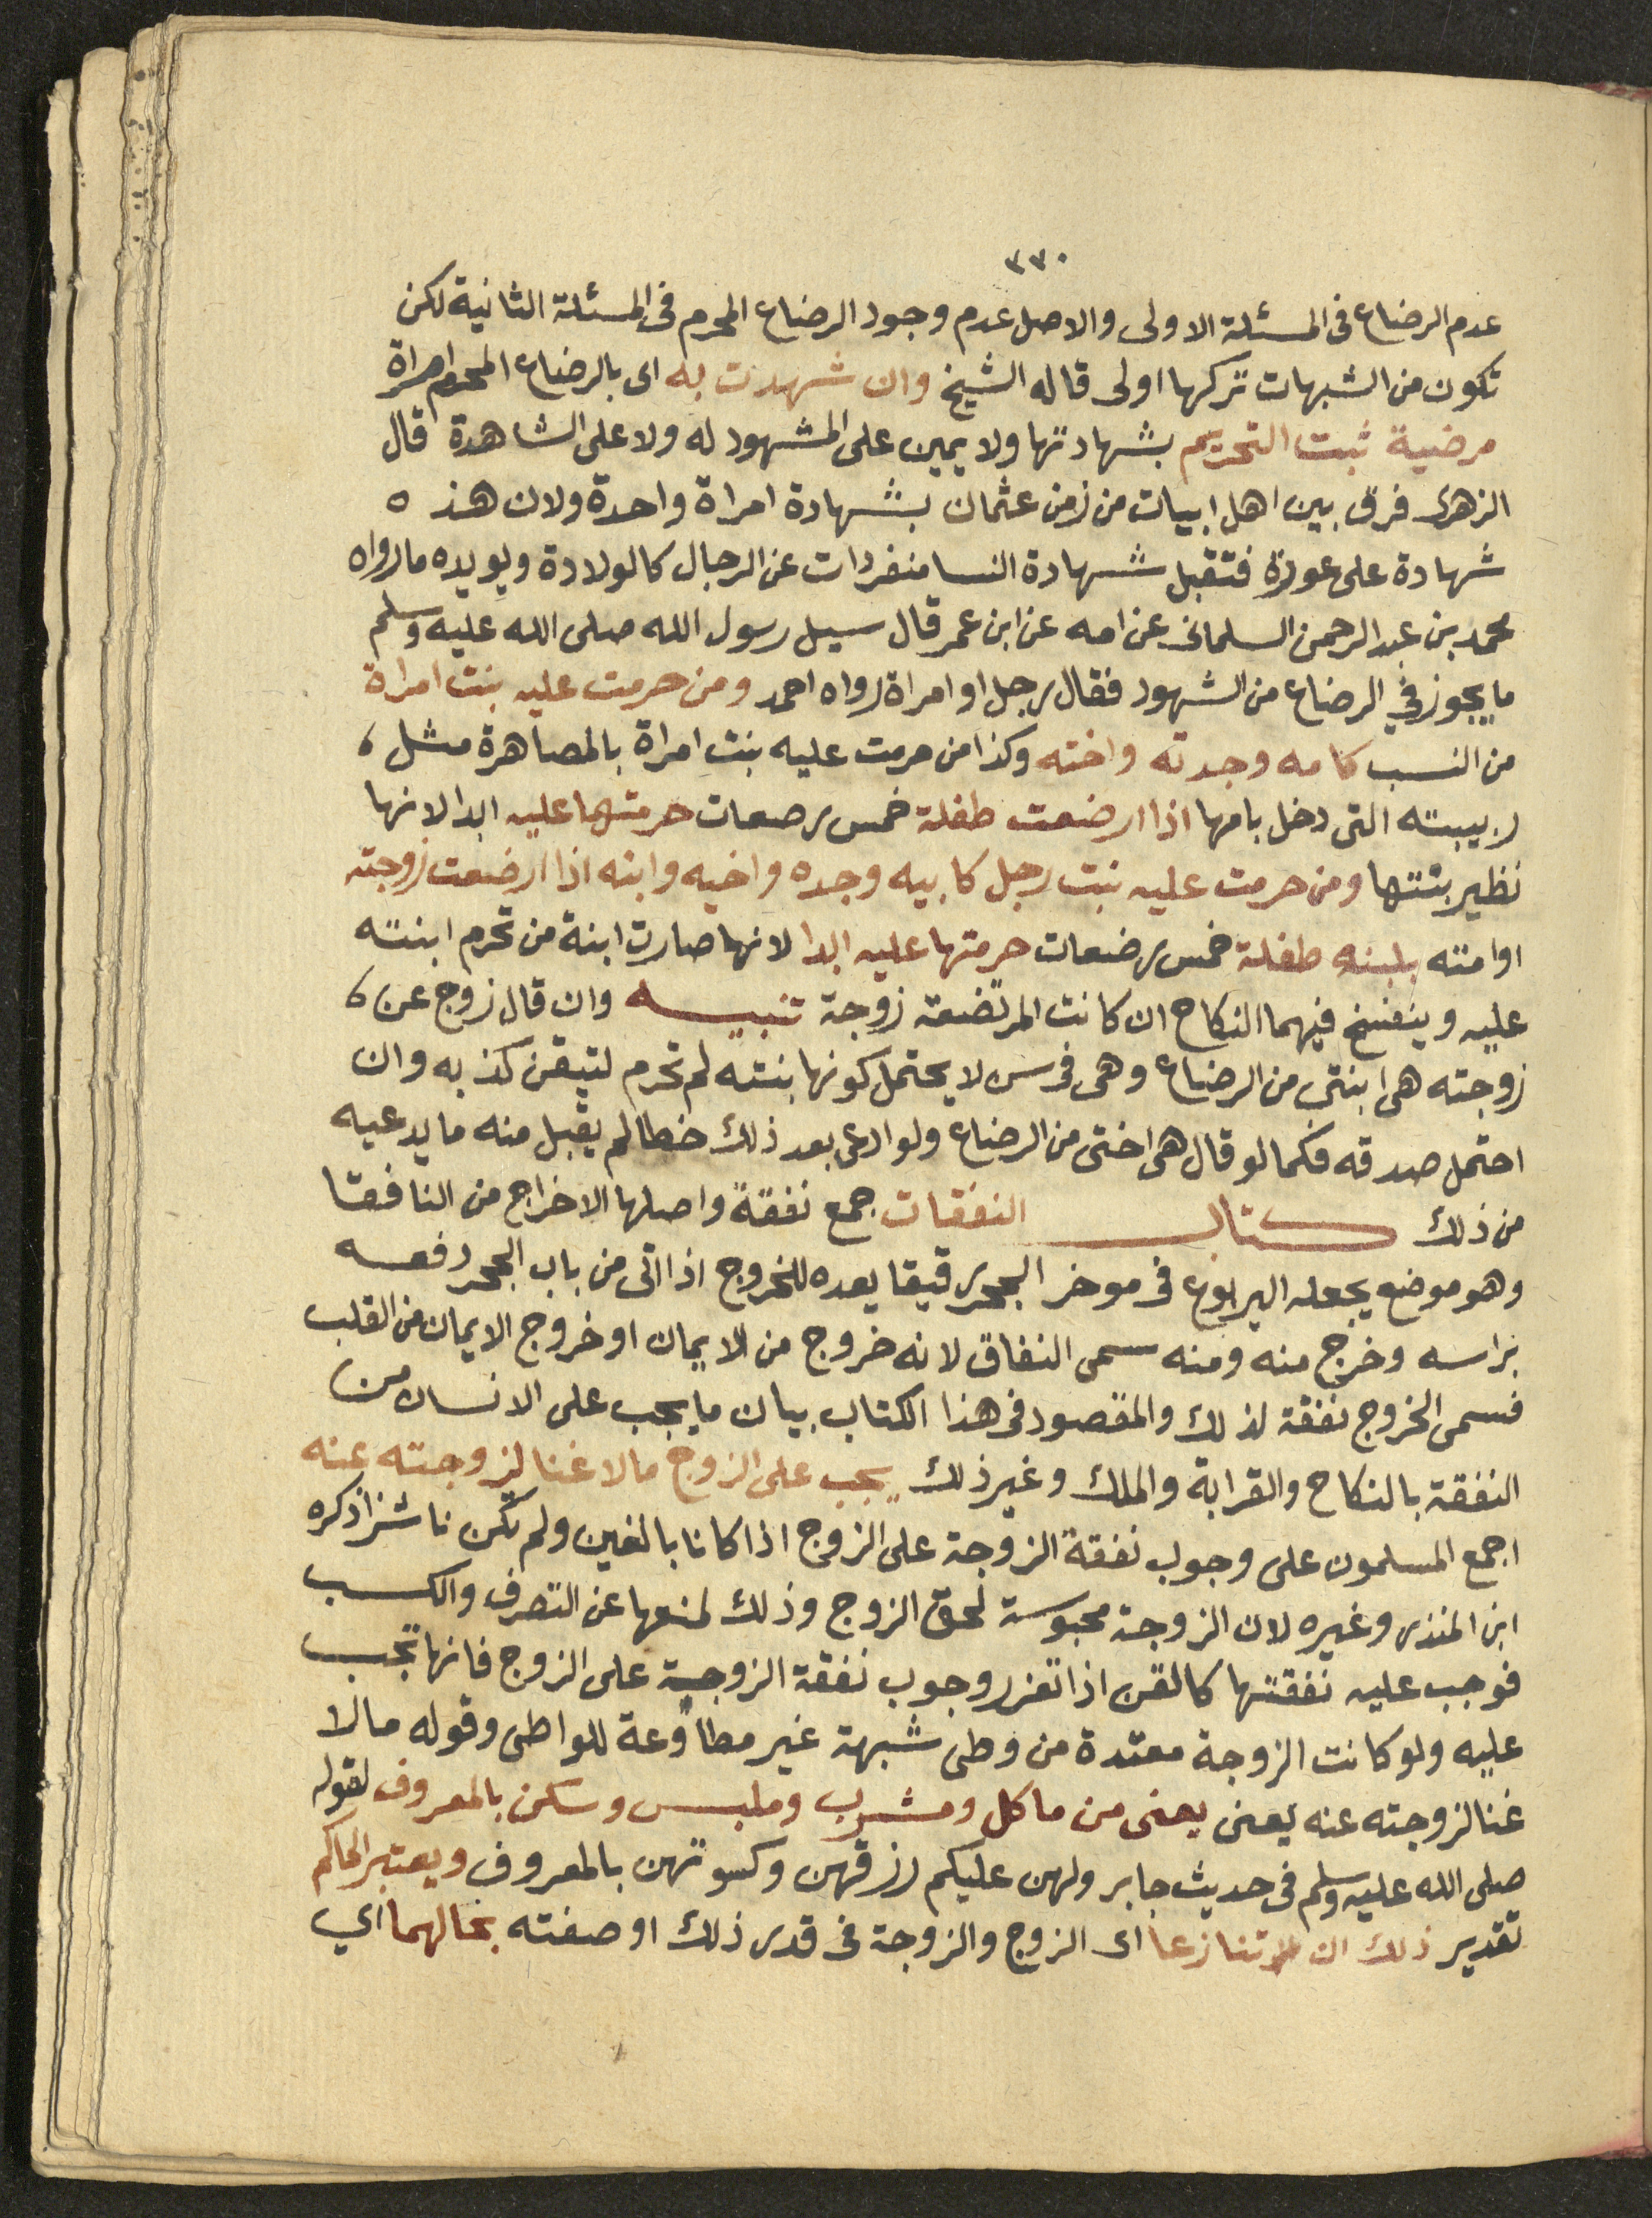 ٣٣٠
عدم الرضاع فى المسئلة الاولى والاصل عدم وجود الرضاع المحرم فى المسئلة الثانية لكن
تكون من الشبهات تركها اولى قاله الشيخ وان شهدت به اى بالرضاع المحرم امراة
مرضية ثبت التحريم بشهادتها ولا يمين على المشهود له ولا على الشاهدة قال
الزهرى فرق بين اهل ابيات من زمن عثمان بشهادة امراة واحدة ولان هذه
شهادة على عورة فتقبل شهادة النسا منفردات عن الرجال كالولادة ويويده ما رواه
محمد بن عبد الرحمن السلمانى عن امه عن ابن عمر قال سيل رسول الله صلى الله عليه وسلم
ما يجوز فى الرضاع من الشهود فقال رجل او امراة رواه احمد ومن حرمت عليه بنت امراة
من النسب كامه وجدته واخته وكذا من حرمت عليه بنت امراة بالمصاهرة مثل
ربيبته التى دخل بامها اذا ارضعت طفلة خمس رضعات حرمتها عليه ابدا لانها
نظير بنتها ومن حرمت عليه بنت رجل كابيه وجده واخيه وابنه اذا ارضعت زوجته
او امته بلبنه طفلة خمس رضعات حرمتها عليه ابدا لانها صارت ابنة من تحرم ابنته
عليه وينفسخ فيهما النكاح ان كانت المرتضعة زوجة تنبيه وان قال زوج عن
زوجته هى ابنتى من الرضاع وهى فى سن لا يحتمل كونها بنته لم تحرم لتيقن كذبه وان
احتمل صدقه فكما لو قال هى اختى من الرضاع ولو ادعى بعد ذلك خطا لم يقبل منه ما يدعيه
من ذلك كتاب النفقات جمع نفقة واصلها الاخراج من النافقا
وهو موضع يجعله اليربوع فى موخر الجحر رقيقا يعده للخروج اذا اتى من باب الجحر دفعه
براسه وخرج منه ومنه سمى النفاق لانه خروج من الايمان او خروج الايمان من القلب
فسمى الخروج نفقة لذلك والمقصود فى هذا الكتاب بيان ما يجب على الانسان من
النفقة بالنكاح والقرابة والملك وغير ذلك يجب على الزوج ما لا غنا لزوجته عنه
اجمع المسلمون على وجوب نفقة الزوجة على الزوج اذا كانا بالغين ولم تكن ناشزا ذكره
ابن المنذر وغيره لان الزوجة محبوسة لحق الزوج وذلك لمنعها عن التصرف والكسب
فوجب عليه نفقتها كالقن اذا تقرر وجوب نفقة الزوجة على الزوج فانها تجب
عليه ولو كانت الزوجة معتدة من وطى شبهة غير مطاوعة للواطى وقوله ما لا
غنا لزوجته عنه يعنى يعنى من ماكل ومشرب وملبس وسكن بالمعروف لقوله
صلى الله عليه وسلم فى حديث جابر ولهن عليكم رزقهن وكسوتهن بالمعروف ويعتبر الحاكم
تقدير ذلك ان تنازعا اى الزوج والزوجة فى قدر ذلك او صفته بحالهما اي